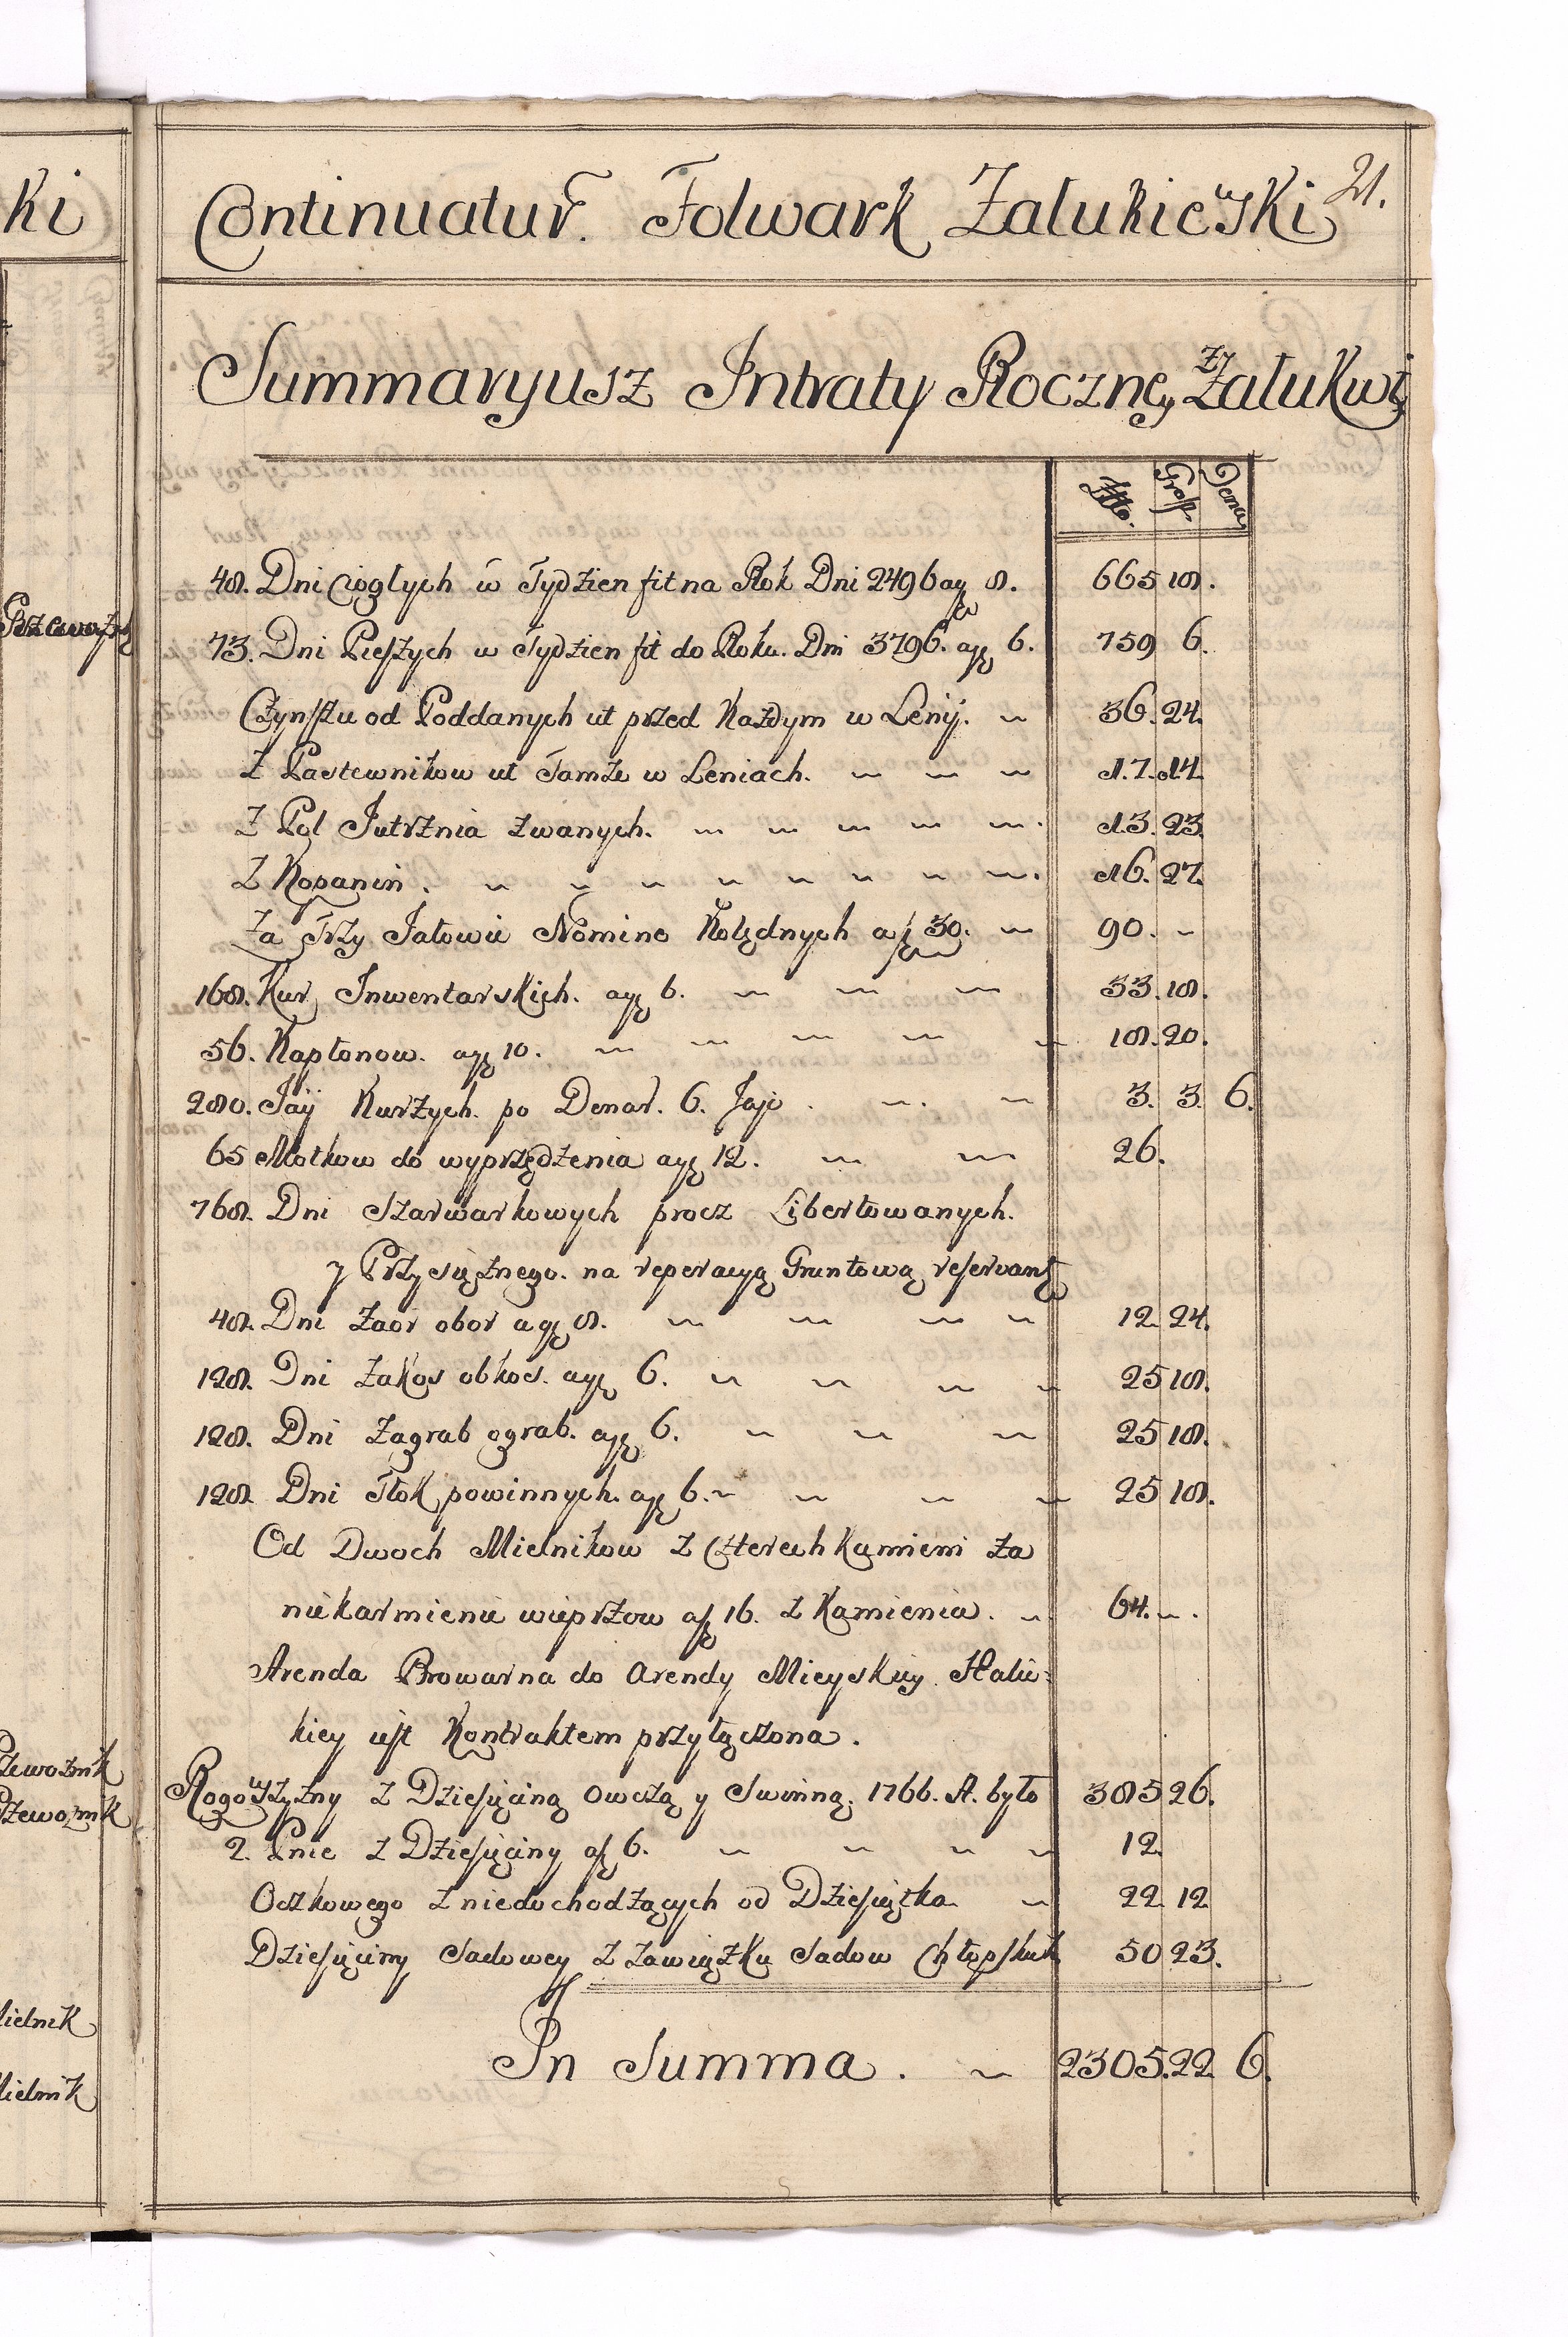 ki
Continuatur. Folwark Załukiewski 21.
Summaryusz Intraty Roczney z Załukwi
Złto. Gross. Dena.
48. Dni Ciągłych w Tydzien fit na Rok Dni 2496 a gr 8. 665 18.
73. Dni Pieszych w Tydzien fit do Roku. Dni 3796. a gr 6. 759 6.
Czynszu od Poddanych ut przed Każdym w Lenij. 36. 24.
Z Pastewnikow ut Tamże w Leniach. 17. 14.
Z Pol Jutrznia zwanych. 13. 23.
Z Kopanin. 16. 27.
Za Trzy Jałowic Nomine Kolędnych a f 30. 90. -
168. Kur Inwentarskich. a gr 6. 33. 18.
56. Kapłonow. a gr 10. 18. 20.
280. Jay Kurzych. po Denar. 6. Jajo. 3. 3. 6.
65 Motkow do wyprzędzenia a gr 12. 26.
768. Dni Szarwarkowych procz Libertowanych.
y Przysiężnego. na reperacyą Gruntową reserwant
48. Dni zaor obor a gr 8. 12. 24.
128. Dni zakos obkos. a gr 6. 25 18.
128. Dni zagrab ograb. a gr 6. 25 18.
128. Dni Tłok powinnych. a gr 6. 25 18.
Od Dwoch Mielnikow z Czterech Kamieni za
niekarmienie wieprzow a f 16. z Kamienia. 64. -.
Arenda Browarna do Arendy Mieyskiey Halic-
kiey iest Kontraktem przyłączona.
Rogowszyzny z Dziesięciną Owczą y Swinną. 1766. A. było 385 26.
2. Pnie z Dziesięciny a f 6. 12.
Oczkowego z niedochodzących od Dziesiątka 22. 12.
Dziesięciny Sadowey z zawiązku Sadow Chłopskich 50 23.
In Summa. 2305. 22. 6.